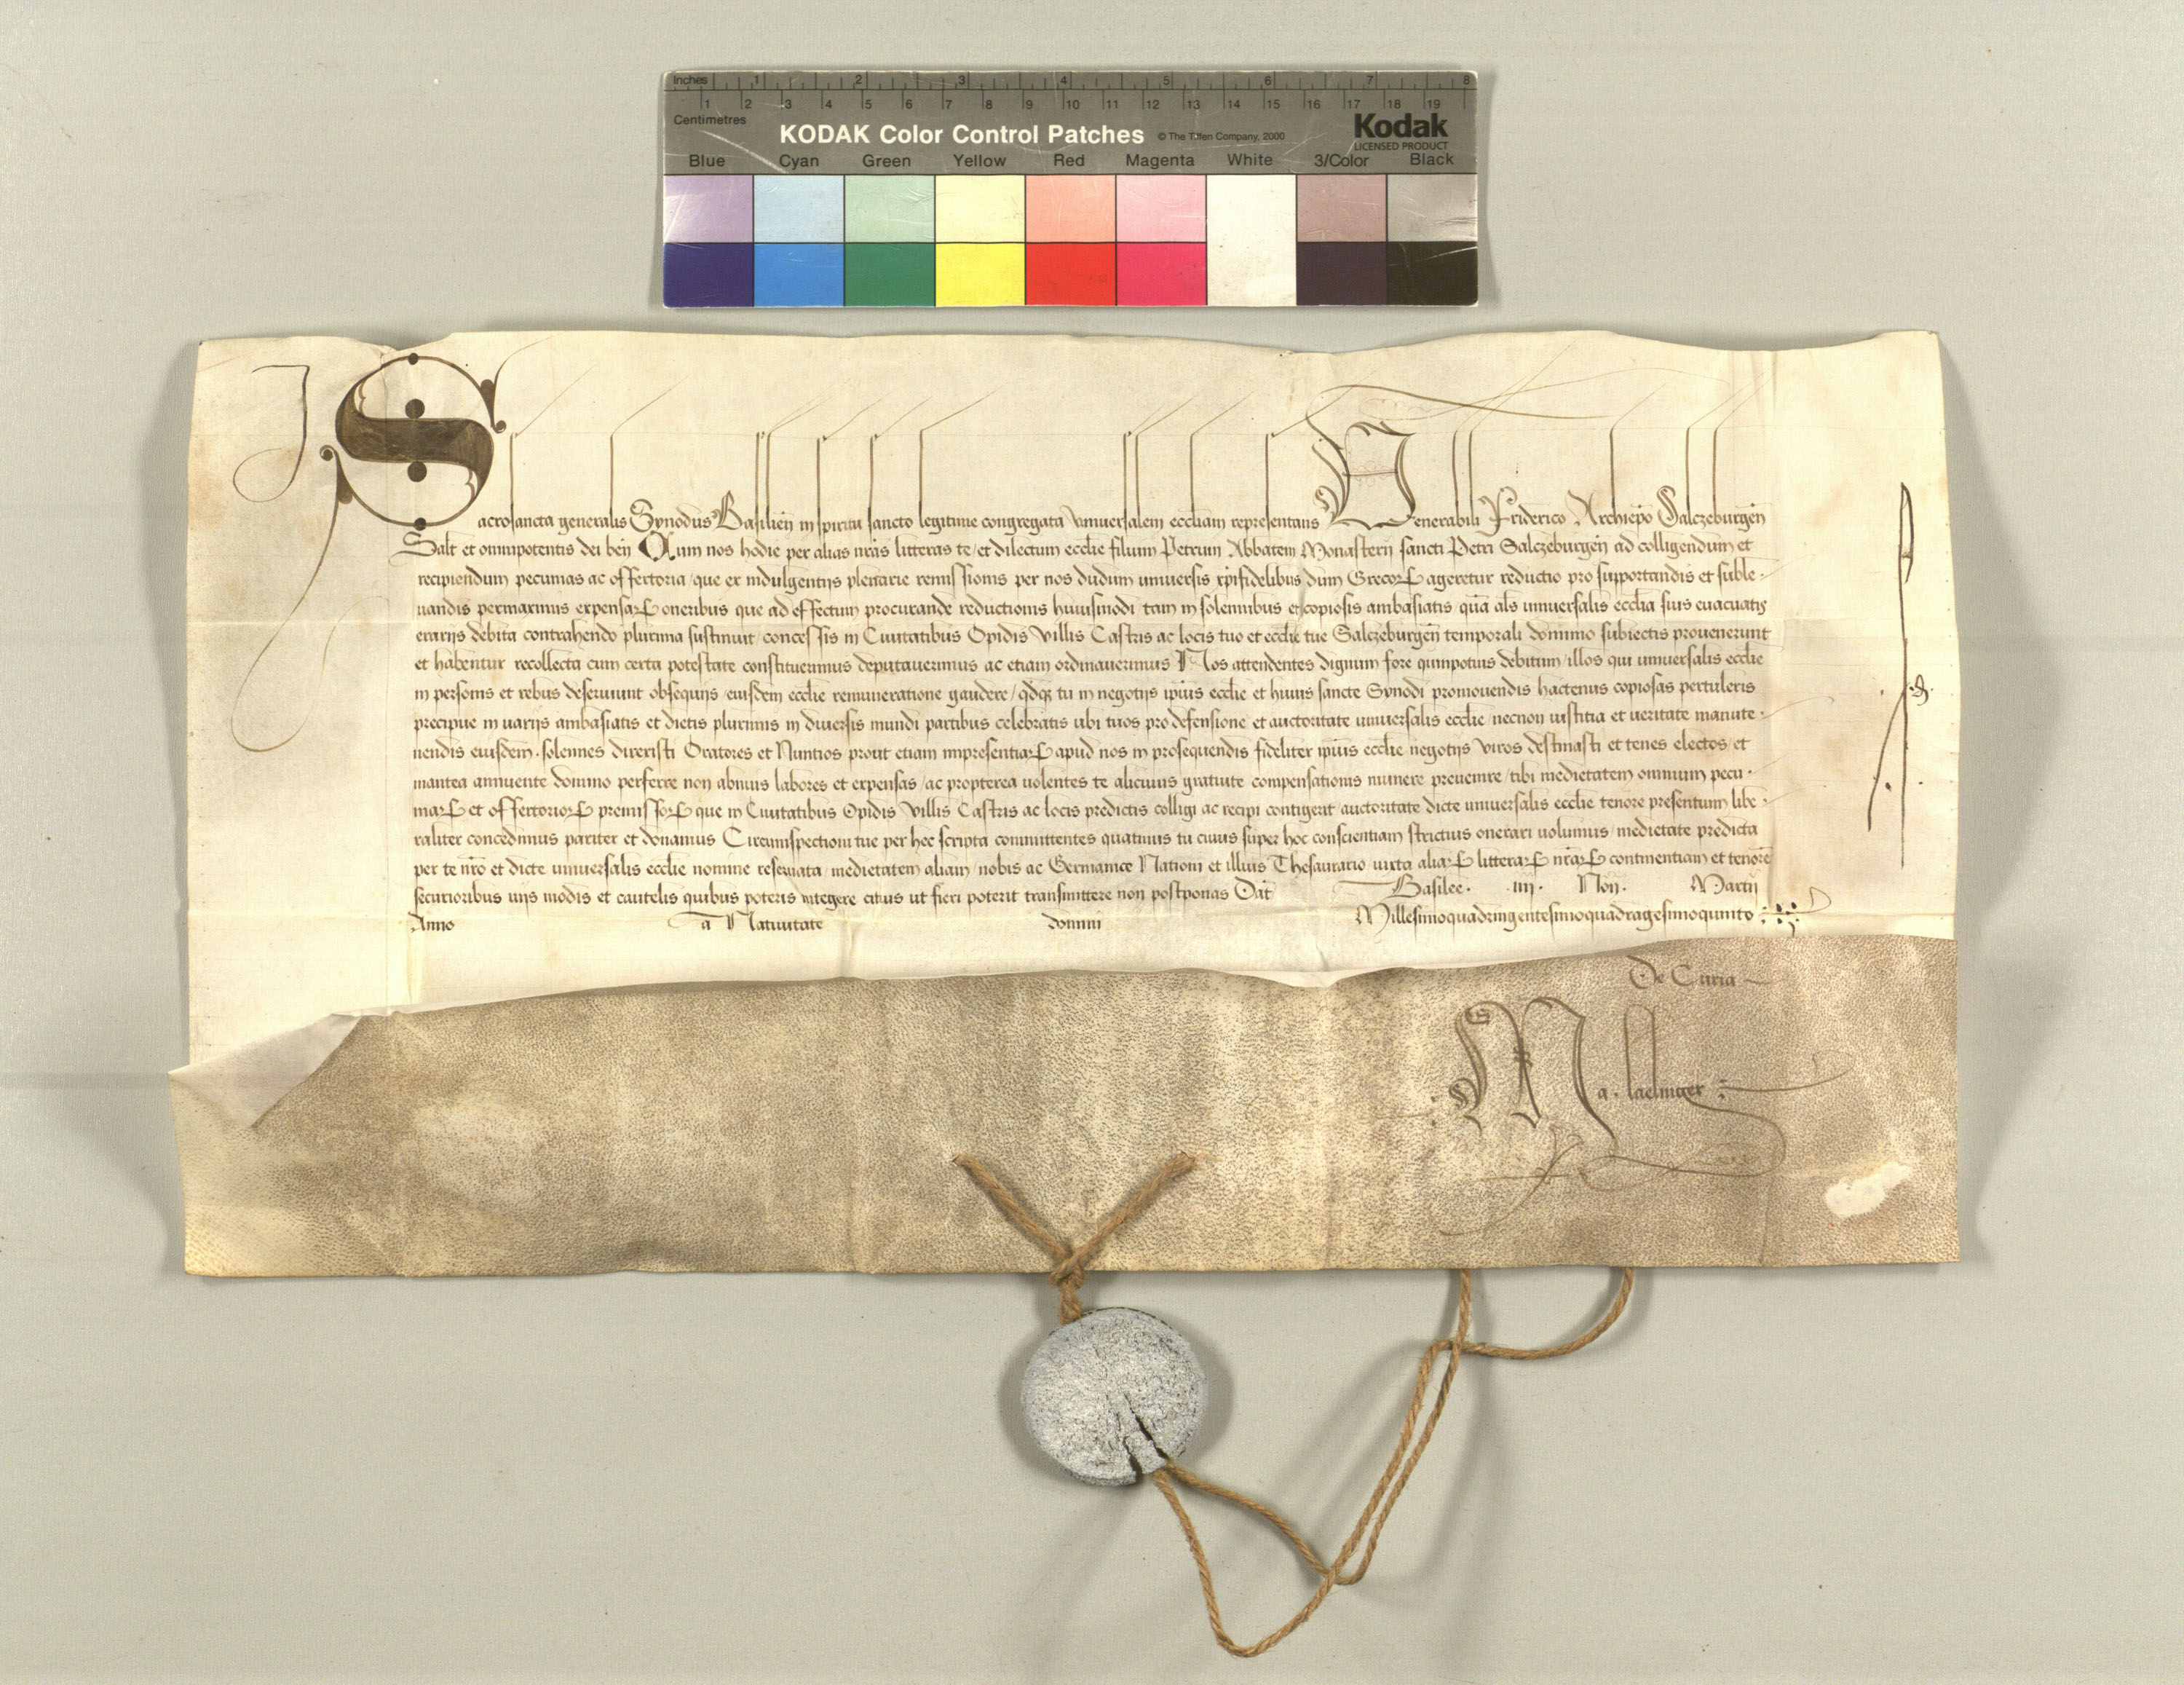 Inches 1 2 3 4 5 6 7 8
1 2 3 4 5 6 7 8 9 10 11 12 13 14 15 16 17 18 19
Centimetres
KODAK Color Control Patches © The Tiffen Company, 2000 Kodak
LICENSED PRODUCT
Blue Cyan Green Yellow Red Magenta White 3/Color Black
Sacrosancta generalis Synodus Basilien̄ in spiritu sancto legitime congregata vniuersalem eccl̄iam representans Venerabili Friderico Archiep̄o Salczeburgen̄
Salt̄ et omnipotentis dei ben̄ Cum nos hodie per alias nr̄as litteras te / et dilectum eccl̄ie filium Petrum Abbatem Monasterij sancti Petri Salczeburgen̄ ad colligendum et
recipiendum pecunias ac offertoria / que ex indulgentijs plenarie remissionis per nos dudum vniuersis xp̄ifidelibus dum Grecoꝝ ageretur reductio pro supportandis et suble-
uandis permaximis expensaꝝ oneribus que ad effectum procurande reductionis huiusmodi tam in solennibus et copiosis ambasiatis quā al̄s vniuersalis eccl̄ia suis euacuatis
erarijs debita contrahendo plurima sustinuit / concessis in Ciuitatibus Opidis Villis Castris ac locis tuo et eccl̄ie tue Salczeburgen̄ temporali dominio subiectis prouenerunt
et habentur recollecta cum certa potestate constituerimus deputauerimus ac etiam ordinauerimus Nos attendentes dignum fore quinpotius debitum / illos qui vniuersalis eccl̄ie
in personis et rebus deseruiunt obsequijs / eiusdem eccl̄ie remuneratione gaudere / qdqꝫ tu in negotijs ip̄ius eccl̄ie et huius sancte Synodi promouendis hactenus copiosas pertuleris
precipue in varijs ambasiatis et dietis plurimis in diuersis mundi partibus celebratis vbi tuos pro defensione et auctoritate vniuersalis eccl̄ie / necnon iustitia et veritate manute-
nendis eiusdem . solennes direxisti Oratores et Nuntios prout etiam impresentiaꝝ apud nos in prosequendis fideliter ip̄ius eccl̄ie negotijs viros destinasti et tenes electos / et
inantea annuente domino perferre non abnuis labores et expensas / ac propterea volentes te alicuius gratuite compensationis munere preuenire / tibi medietatem omnium pecu-
niaꝝ et offertorioꝝ premissoꝝ que in Ciuitatibus Opidis Villis Castris ac locis predictis colligi ac recipi contigerit / auctoritate dicte vniuersalis eccl̄ie tenore presentium libe-
raliter concedimus pariter et donamus Circumspectioni tue per hec scripta committentes quatinus tu cuius super hoc conscientiam strictius onerari volumus / medietate predicta
per te nr̄o et dicte vniuersalis eccl̄ie nomine reseruata / medietatem aliam / nobis ac Germanice Nationi et illius Thesaurario iuxta aliaꝝ litteraꝝ nr̄aꝝ continentiam et tenorē
securioribus vijs modis et cautelis quibus poteris integere citius ut fieri poterit transmittere non postponas Dat̄ Basilee . iiij . Non̄ . Martij
Anno a Natiuitate domini Millesimoquadringentesimoquadragesimoquinto
De Curia